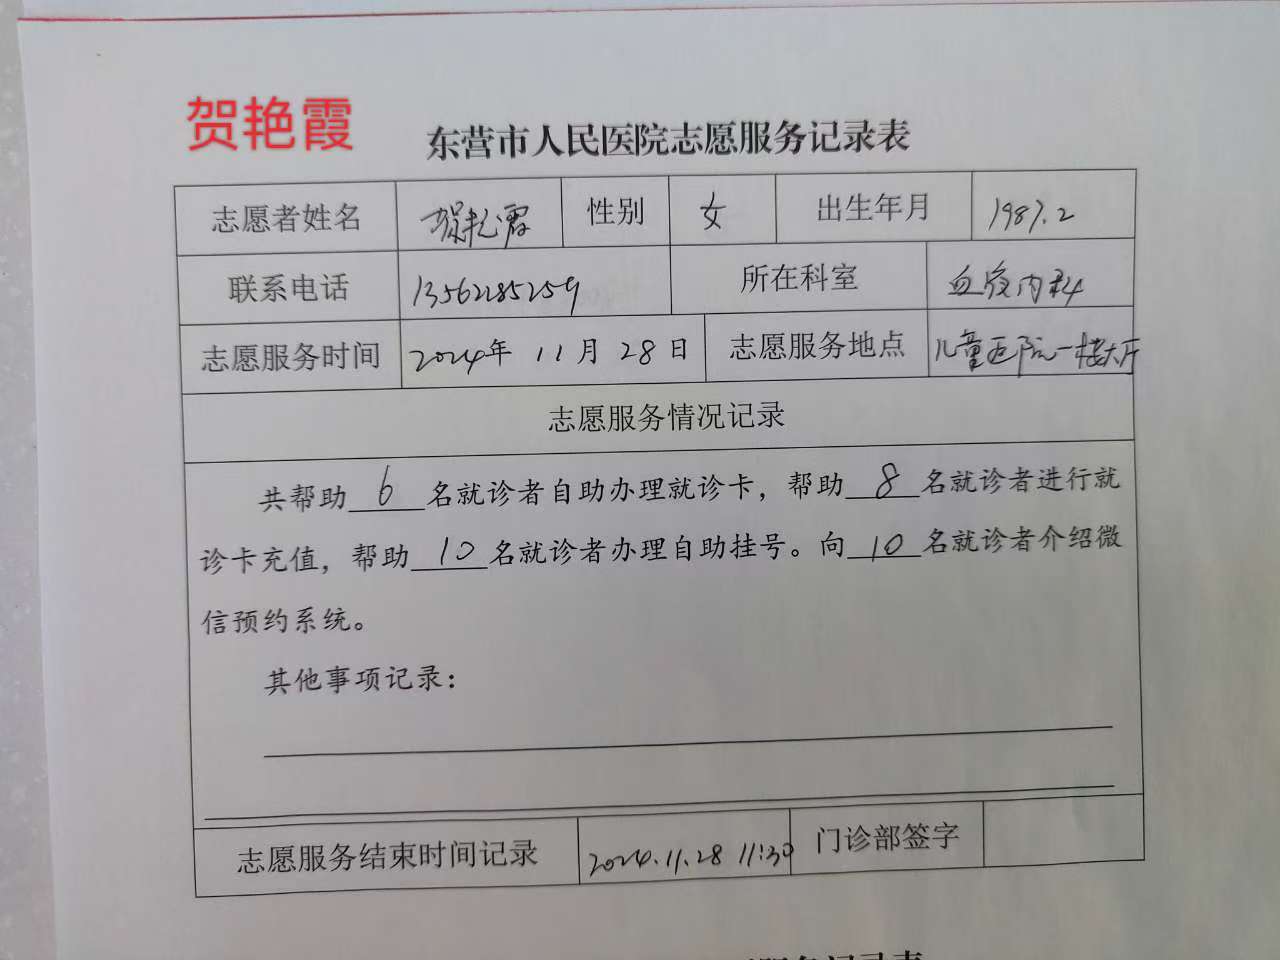 贺艳霞
东营市人民医院志愿服务记录表
志愿者姓名 贺艳霞 性别 女 出生年月 1987.2
联系电话 13562285259 所在科室 血液内科
志愿服务时间 2024年 11月 28日 志愿服务地点 儿童医院一楼大厅
志愿服务情况记录
共帮助 6 名就诊者自助办理就诊卡，帮助 8 名就诊者进行就
诊卡充值，帮助 10 名就诊者办理自助挂号。向 10 名就诊者介绍微
信预约系统。
其他事项记录：
志愿服务结束时间记录 2024.11.28 11:30 门诊部签字
服务记录表